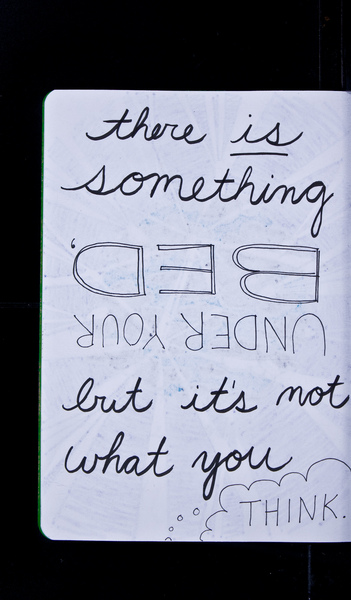 there is
something
UNDER YOUR
BED,
but it's not
what you
THINK.